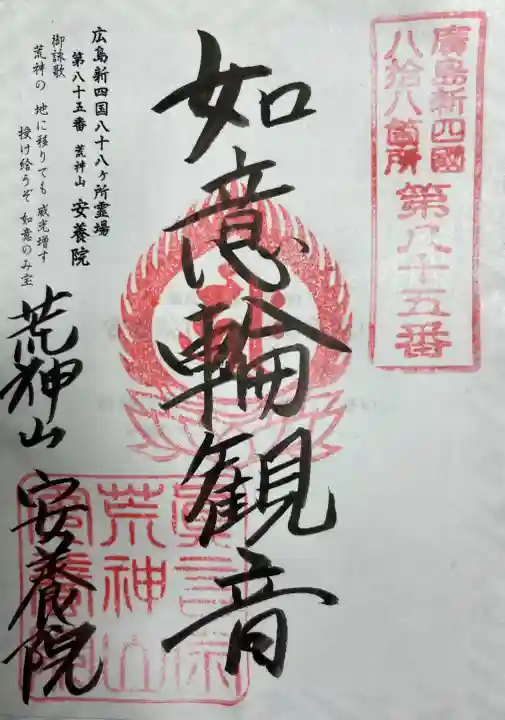 廣島新四國
八拾八箇所
第八十五番
如意輪観音
広島新四国八十八ヶ所霊場
第八十五番 荒神山 安養院
御詠歌
荒神の 地に移りても 威光増す
授け給うぞ 如意のみ宝
荒神山 安養院
真言宗
荒神山
安養院